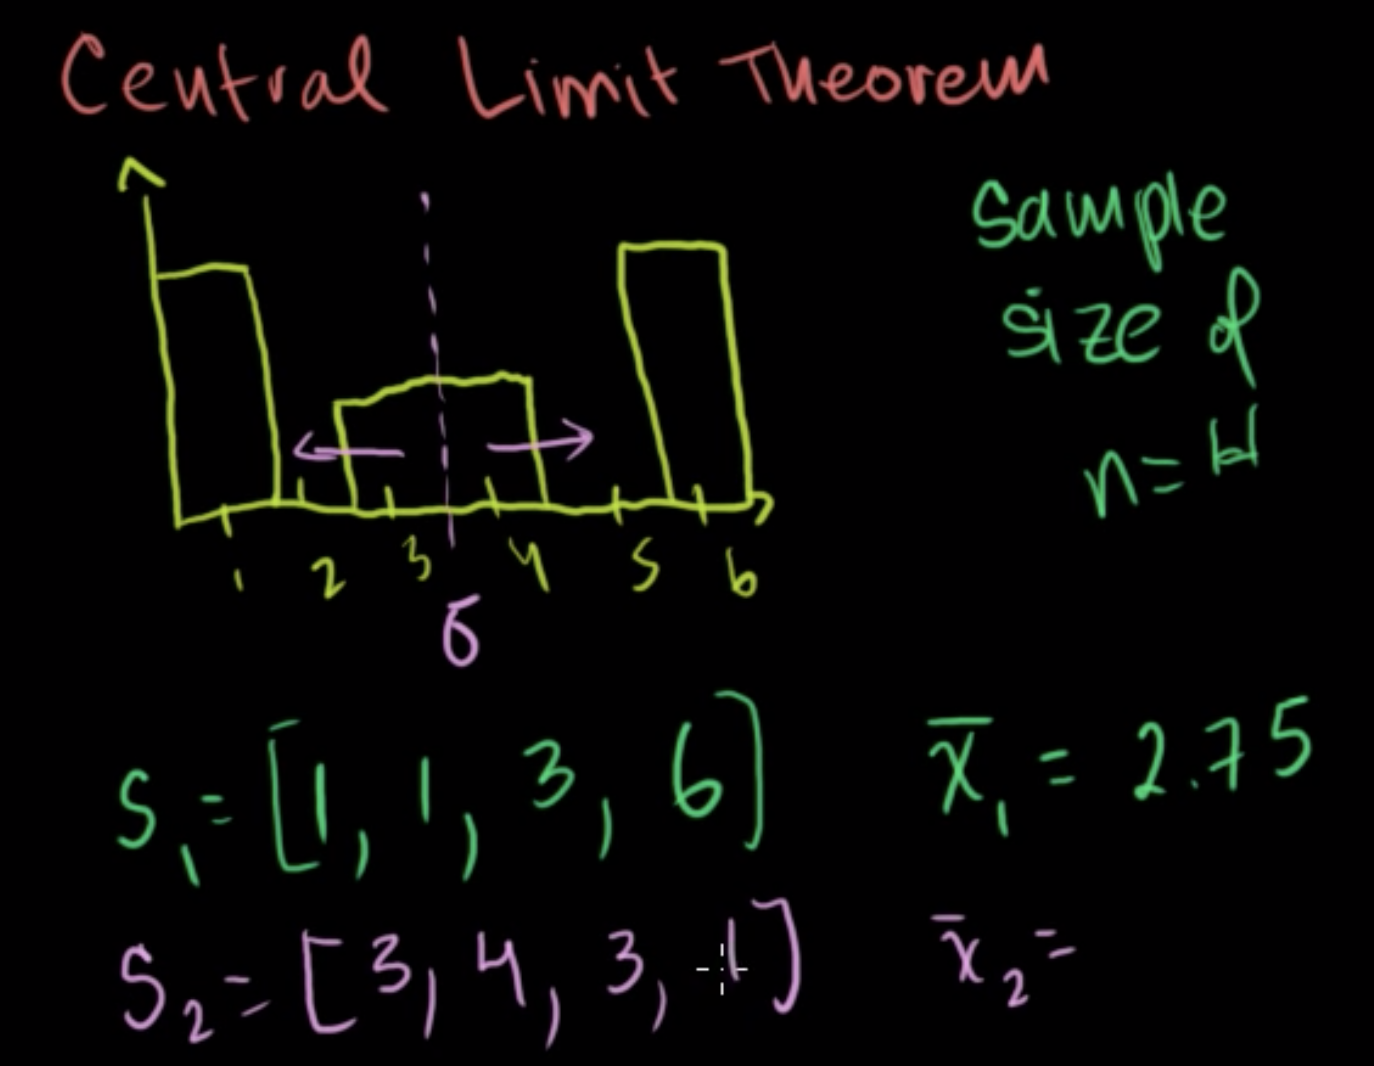 Central Limit Theorem
sample
size of
n = 4
1 2 3 4 5 6
σ
S₁ = [1, 1, 3, 6] x̄₁ = 2.75
S₂ = [3, 4, 3, 1] x̄₂ =